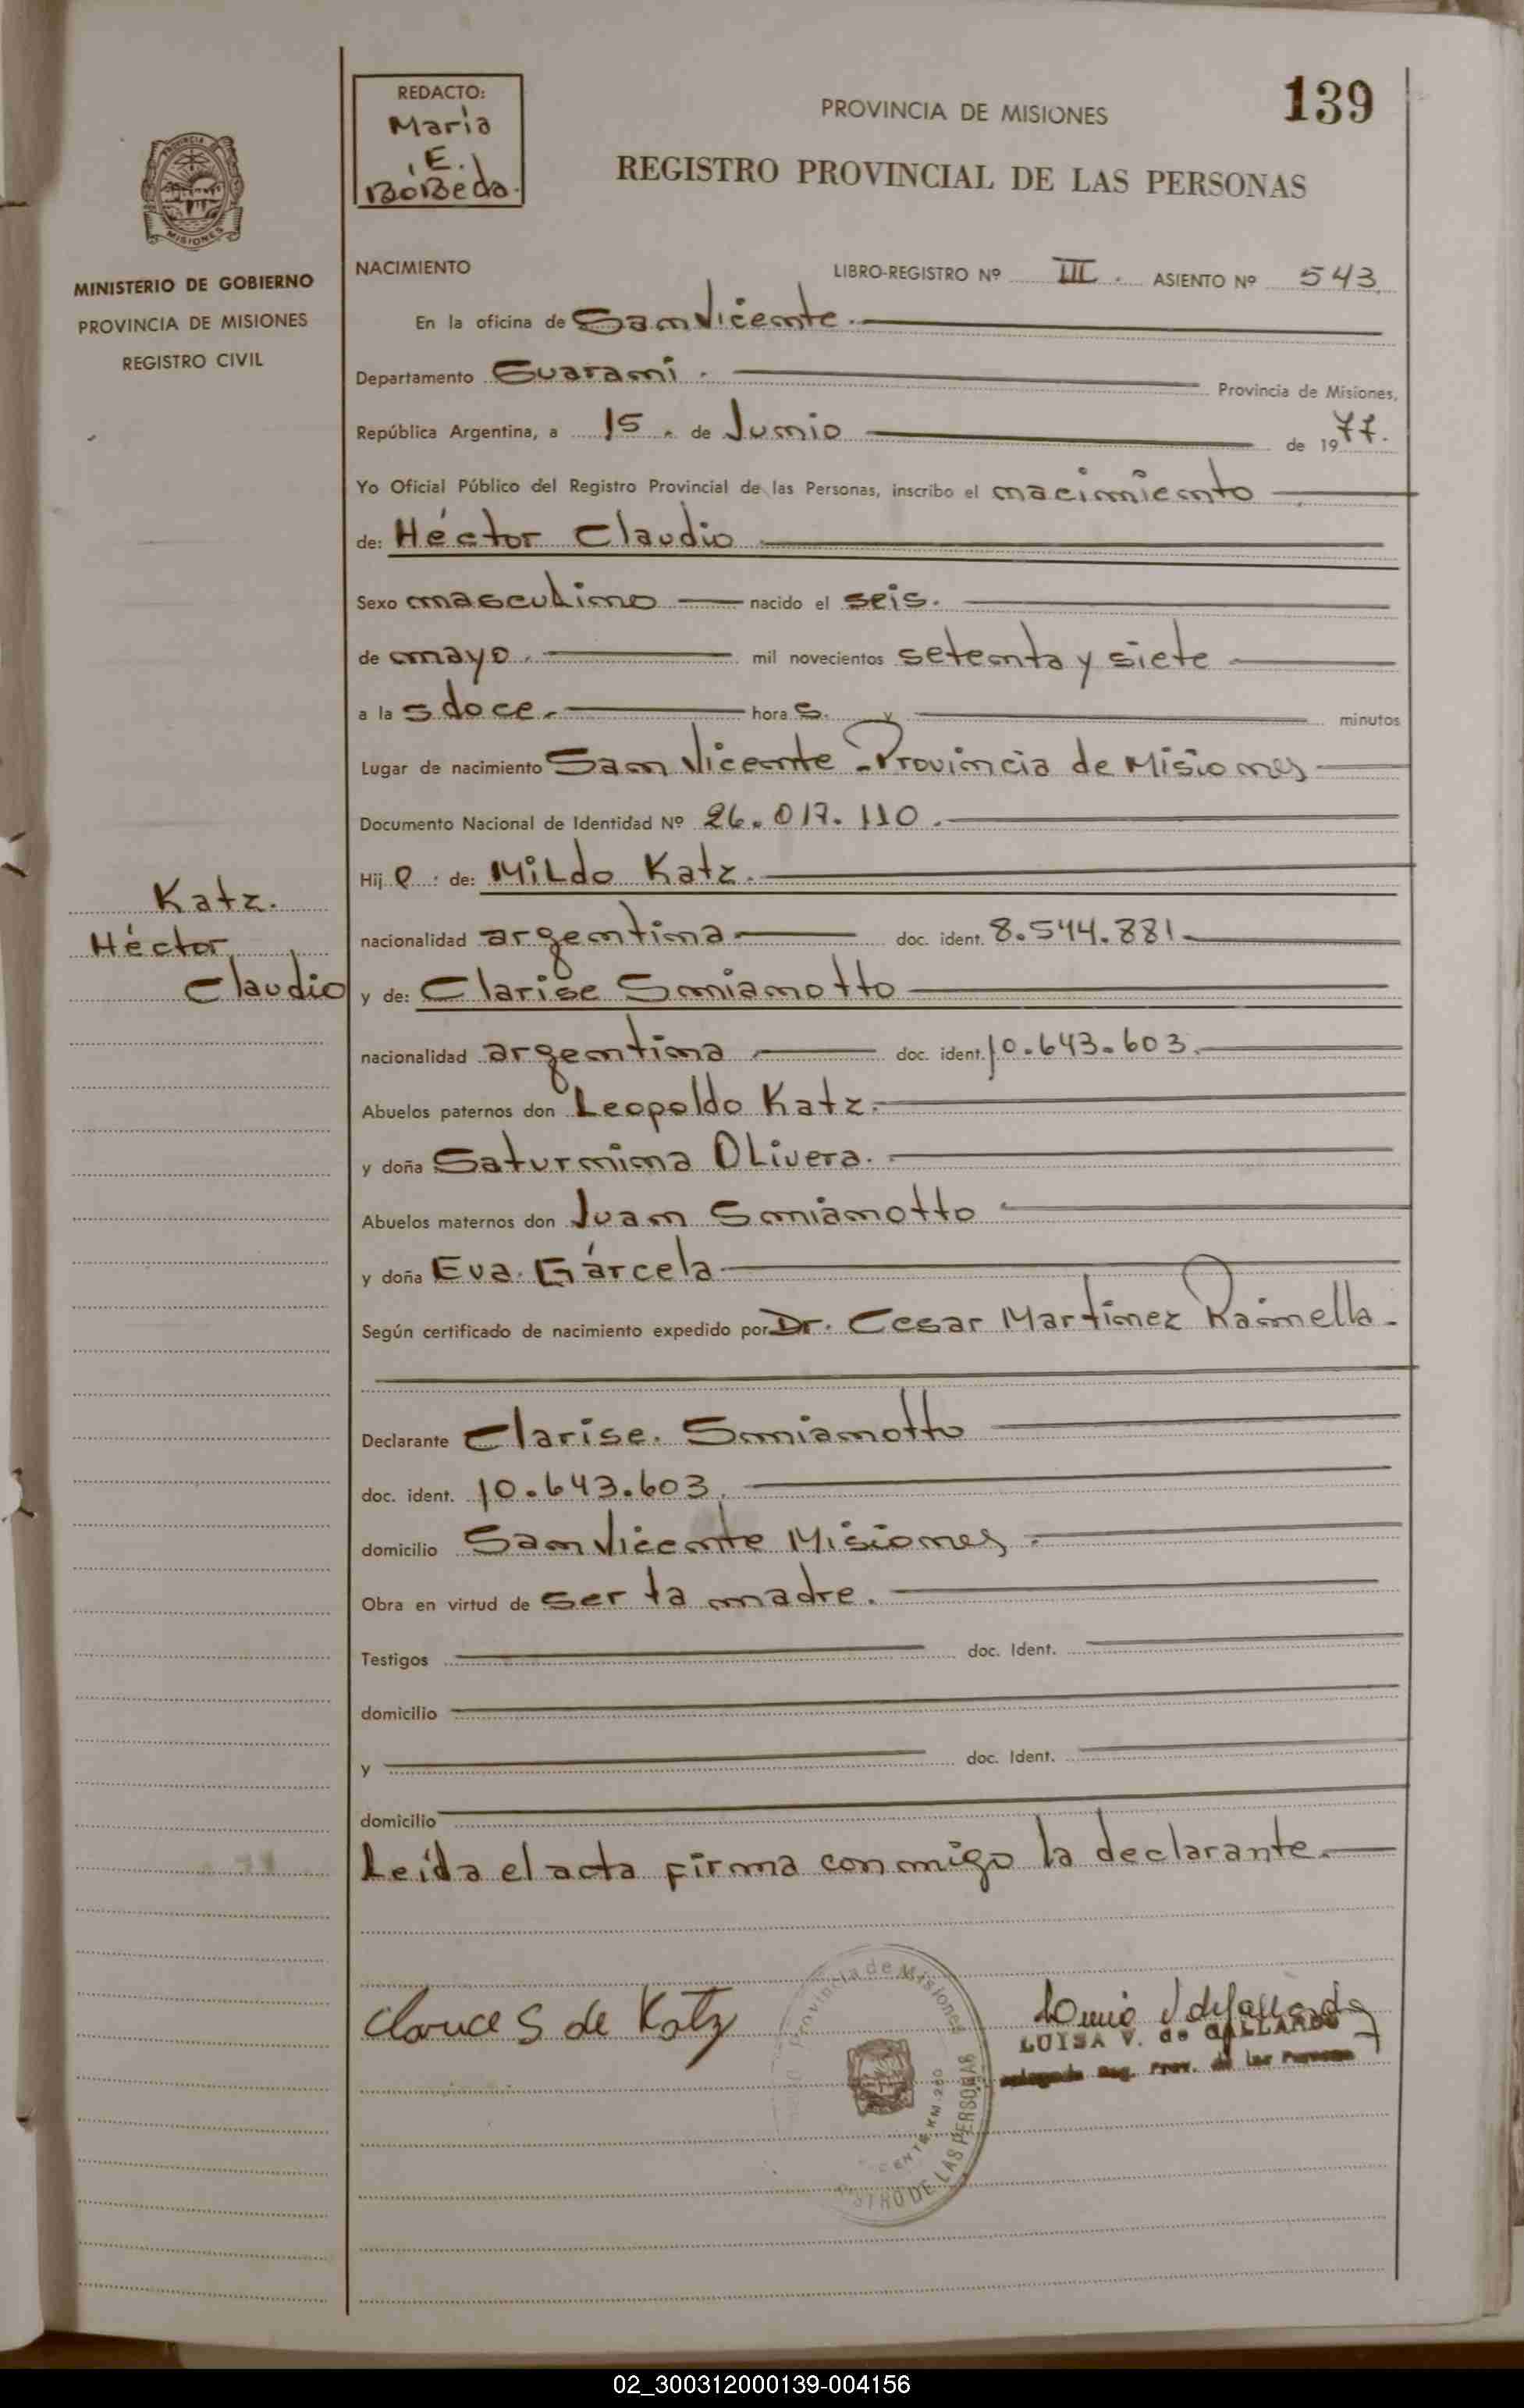 139
REDACTO:
Maria
E.
BoBeda.
PROVINCIA DE MISIONES
REGISTRO PROVINCIAL DE LAS PERSONAS
PROVINCIA
MISIONES
MINISTERIO DE GOBIERNO
PROVINCIA DE MISIONES
REGISTRO CIVIL
NACIMIENTO
LIBRO-REGISTRO Nº III. ASIENTO Nº 543
En la oficina de San Vicente.
Departamento Guarani. Provincia de Misiones,
República Argentina, a 15. de Junio de 1977.
Yo Oficial Público del Registro Provincial de las Personas, inscribo el nacimiento
de: Héctor Claudio
Sexo masculino nacido el seis.
de mayo. mil novecientos setenta y siete
a la s doce. hora s. y minutos
Lugar de nacimiento San Vicente - Provincia de Misiones
Documento Nacional de Identidad Nº 26.017.110.
Hij o : de: MiLdo Katz.
Katz.
Héctor
Claudio
nacionalidad argentina doc. ident. 8.544.881
y de: Clarise Smiamotto
nacionalidad argentina doc. ident. 10.643.603.
Abuelos paternos don Leopoldo Katz.
y doña Saturnina OLivera.
Abuelos maternos don Juan Smiamotto
y doña Eva Gárcela
Según certificado de nacimiento expedido por Dr. Cesar Martinez Rainella.
Declarante Clarise. Smiamotto
doc. ident. 10.643.603.
domicilio San Vicente Misiones.
Obra en virtud de ser la madre.
Testigos doc. Ident.
domicilio
y doc. Ident.
domicilio
Leída el acta firma conmigo la declarante.
Clarice S de Katz
Provincia de Misiones
KM. 260
DE LAS PERSONAS
LUISA V. de GALLARDO
Delegada Reg. Prov. de las Personas
02_300312000139-004156